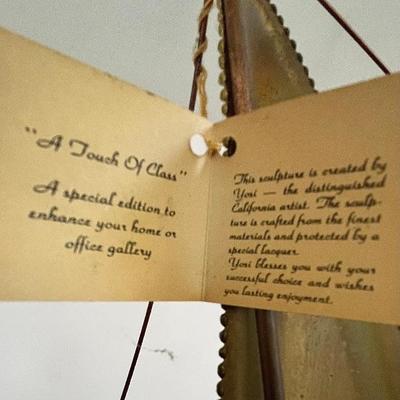 "A Touch Of Class"
A special edition to
enhance your home or
office gallery
This sculpture is created by
Yosi — the distinguished
California artist. The sculp-
ture is crafted from the finest
materials and protected by a
special lacquer.
Yosi blesses you with your
successful choice and wishes
you lasting enjoyment.